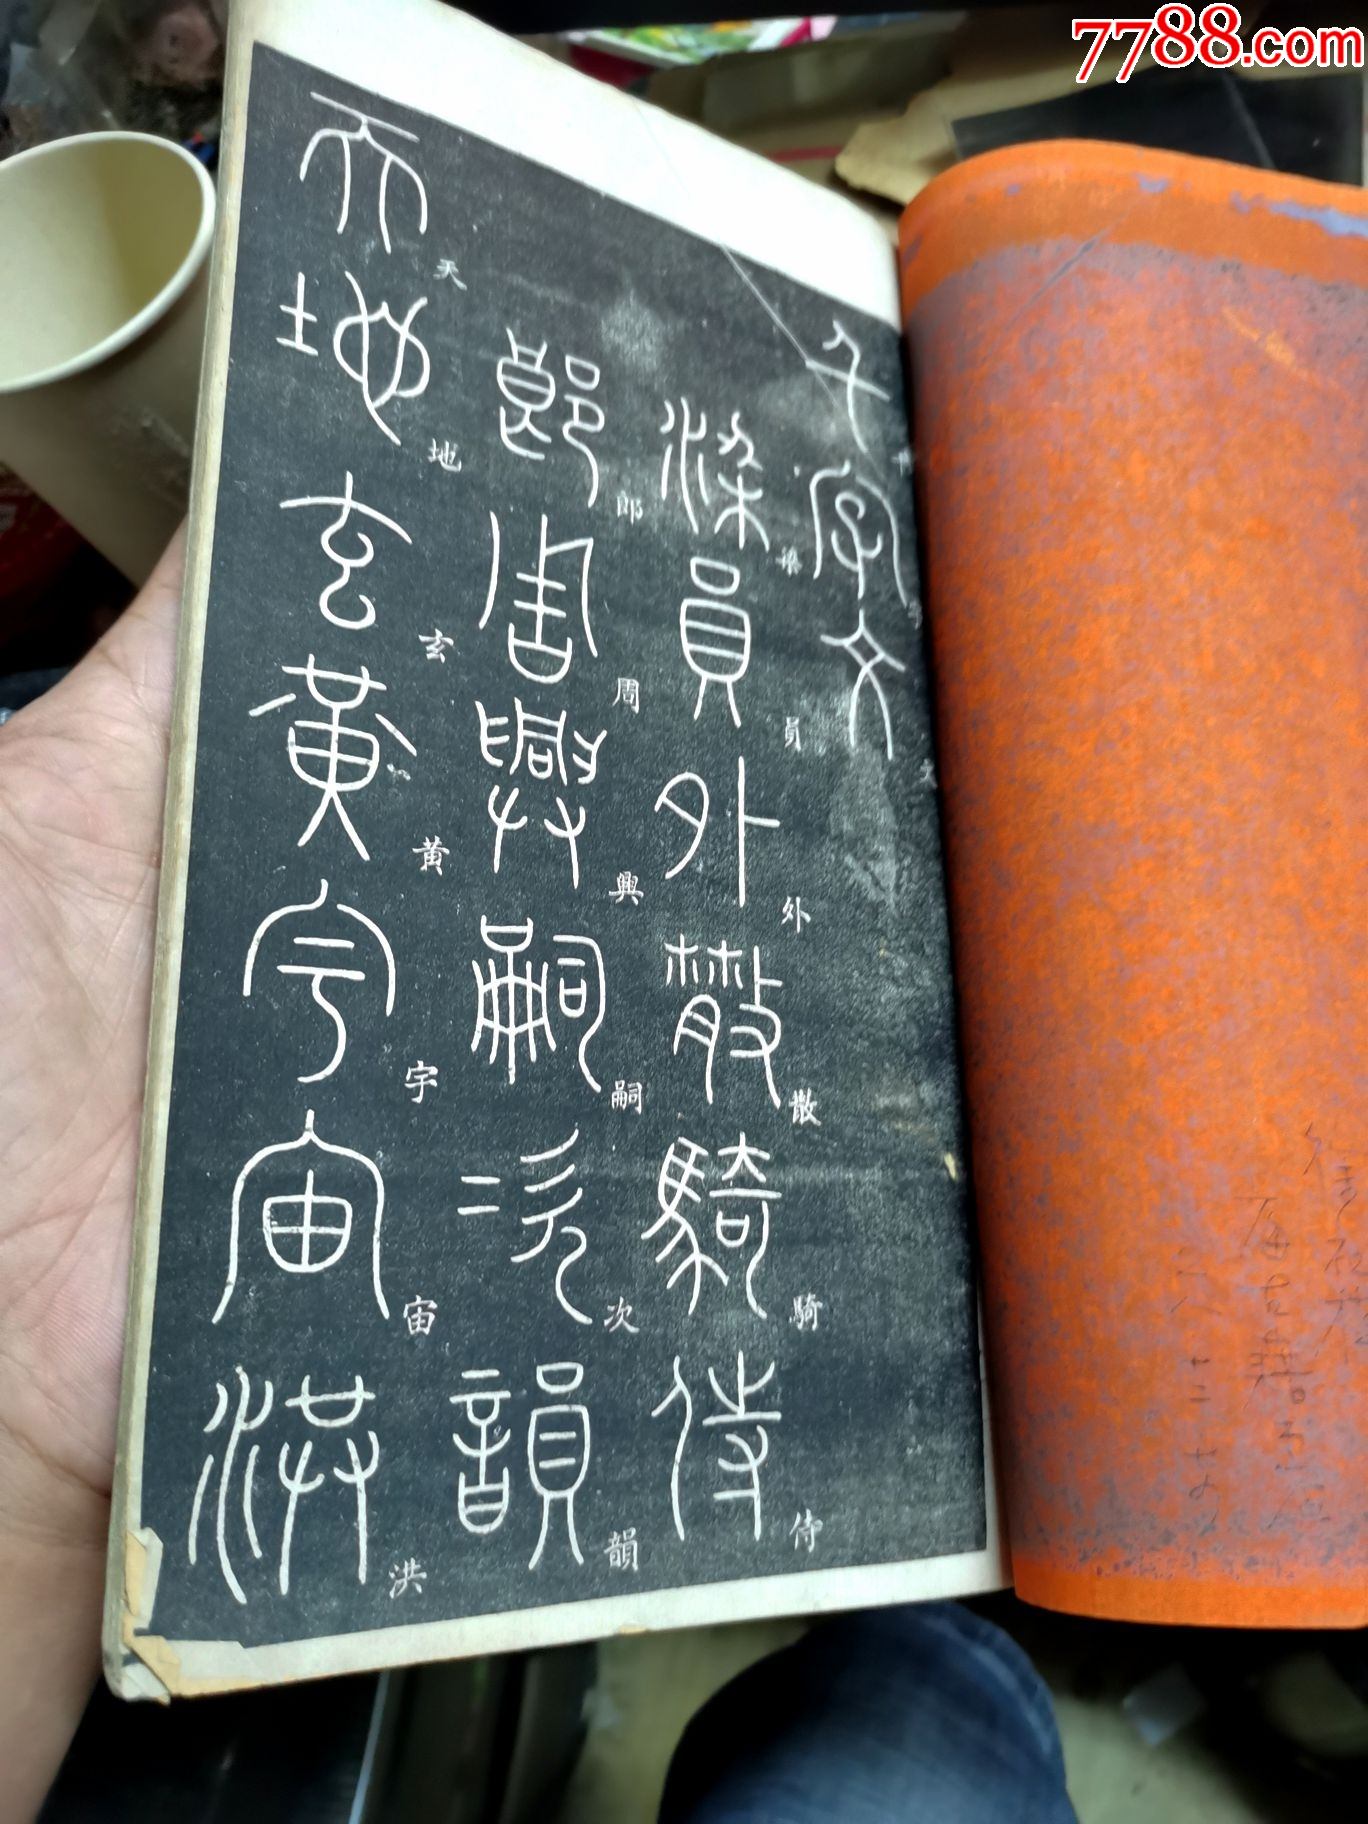 7788.com
千字文
文
梁員外散騎侍
梁員外散騎侍
郎周興嗣次韻
郎周興嗣次韻
天地玄黃宇宙洪
天地玄黃宇宙洪